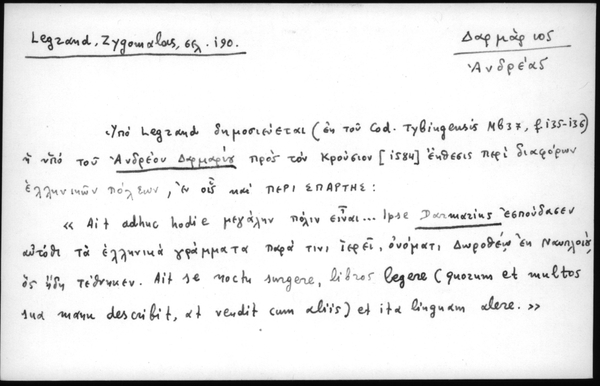 Legrand, Zygomalas, σελ. 190.
Δαρμάριος
Ἀνδρέας
Ὑπό Legrand δημοσιεύεται (ἐκ τοῦ Cod. Tybingensis Mb 37, f. 135-136)
ἡ ὑπό τοῦ Ἀνδρέου Δαρμαρίου πρὸς τόν Κρούσιον [1584] ἔκθεσις περί διαφόρων
ἑλληνικῶν πόλεων, ἐν οἷς καί ΠΕΡΙ ΣΠΑΡΤΗΣ:
« Ait adhuc hodie μεγάλην πόλιν εἶναι... Ipse Darmarius ἐσπούδασεν
αὐτόθι τά ἑλληνικά γράμματα παρά τινι ἱερεῖ, ὀνόματι Δωροθέῳ ἐκ Ναυπλοίου,
ὃς ἤδη τέθνηκεν. Ait se noctu surgere, libros legere (quorum et multos
sua manu describit, at vendit cum aliis) et ita linguam alere. »